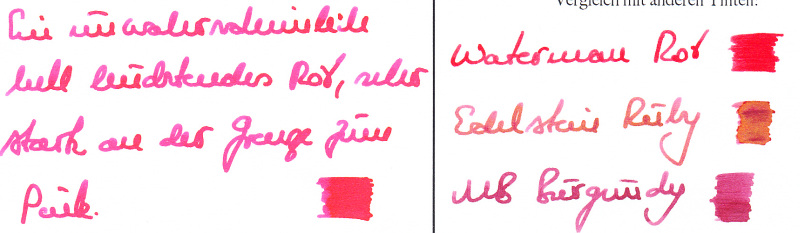 Ein unwahrscheinlich
hell leuchtendes Rot, sehr
stark an der Grenze zum
Pink.
Vergleich mit anderen Tinten:
Waterman Rot
Edelstein Ruby
MB Burgundy